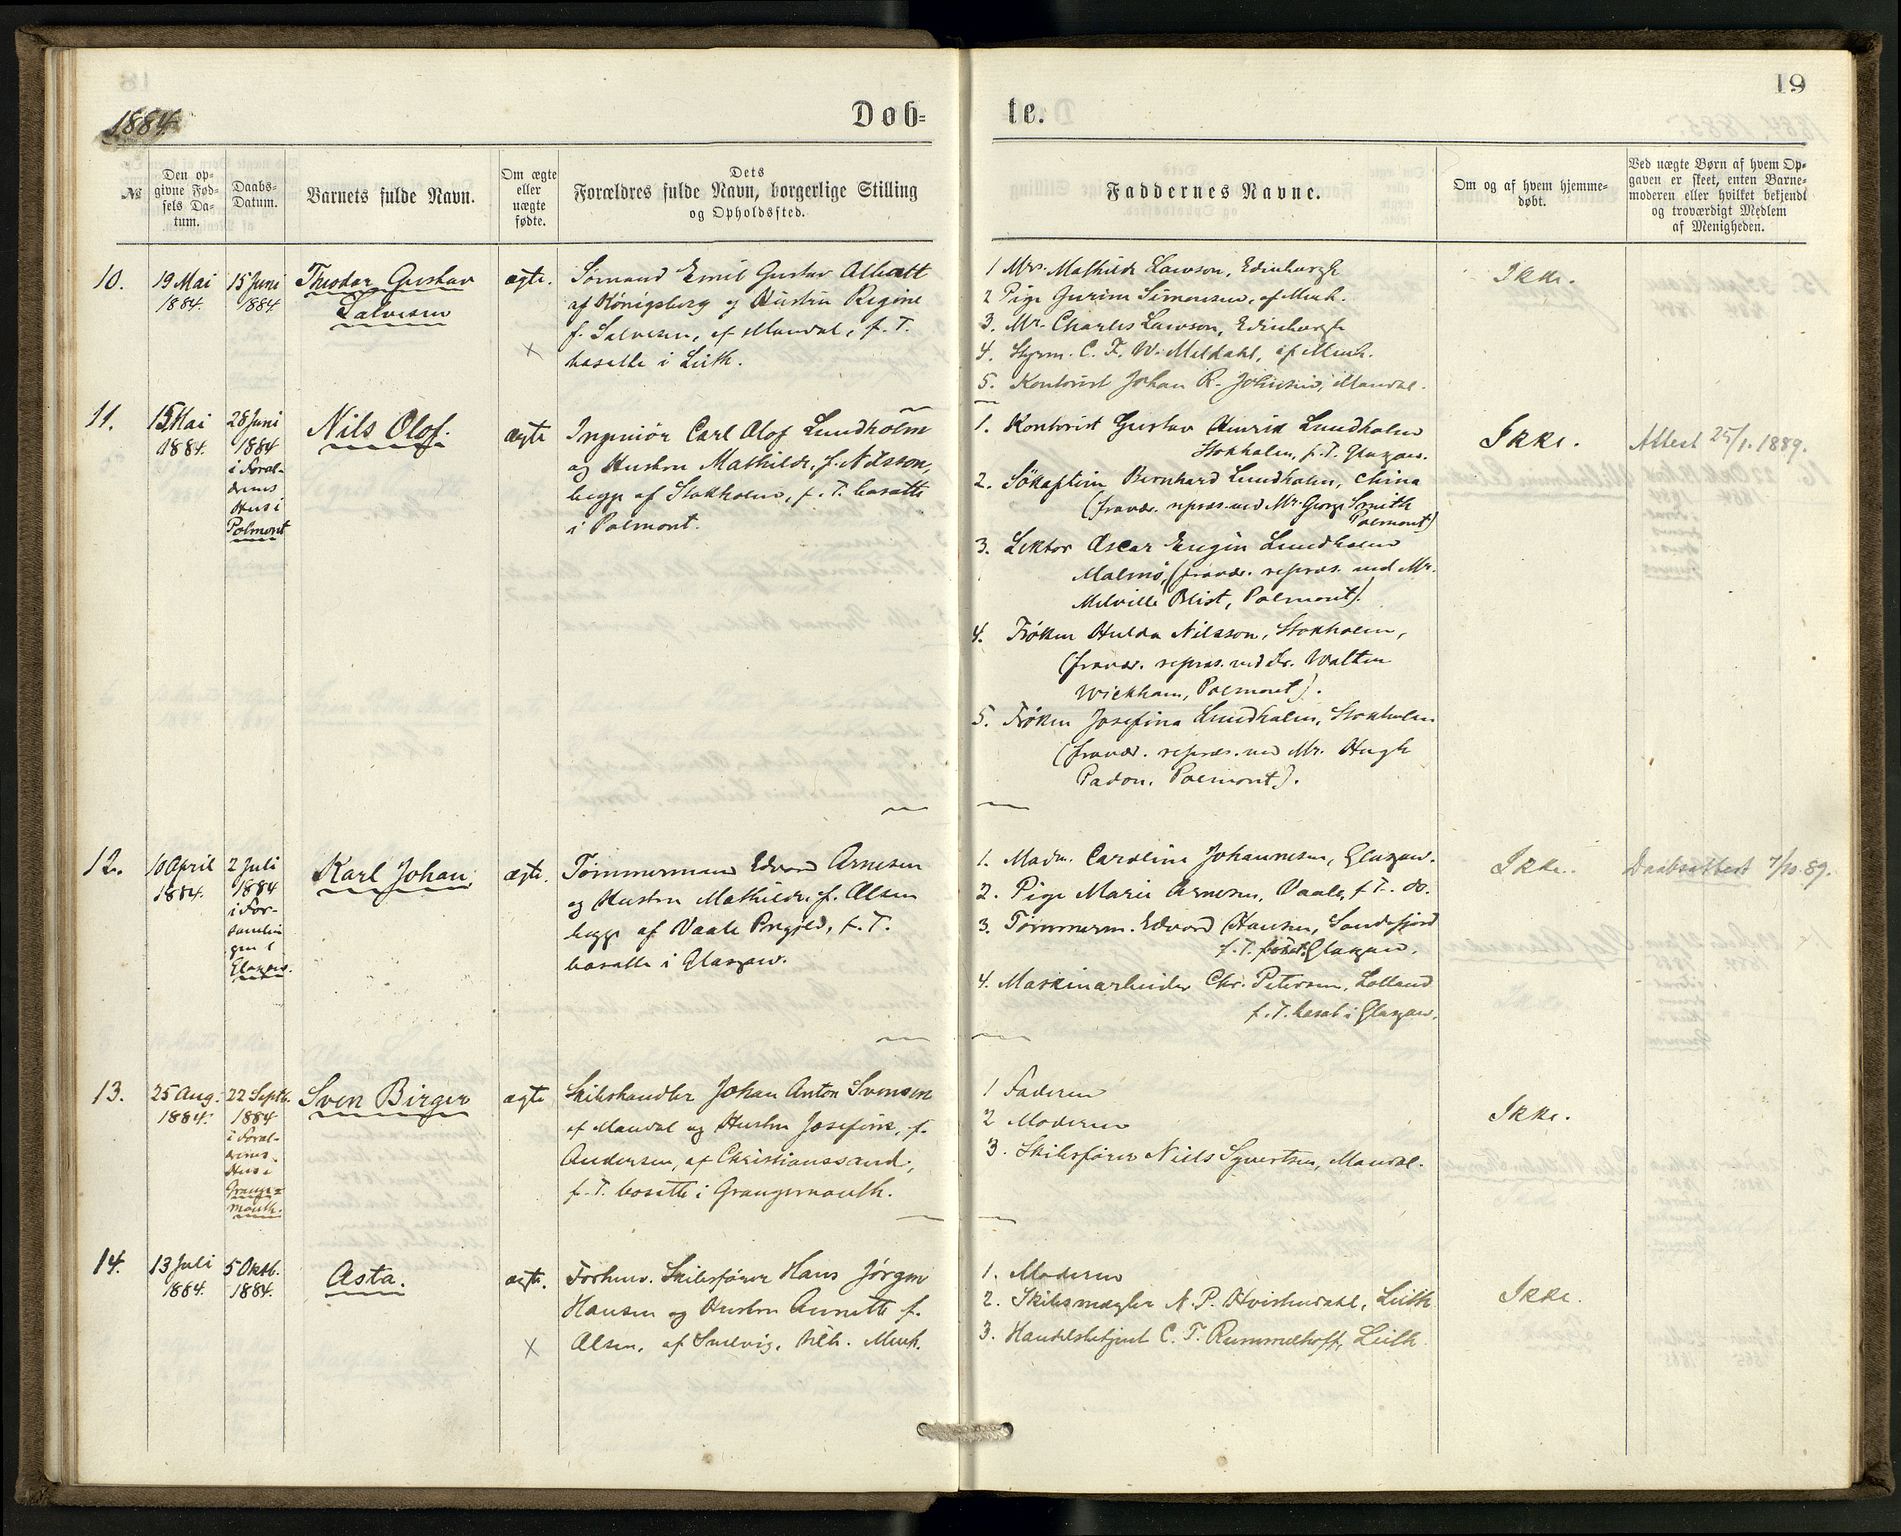 1884
Døb-
te.
19
№
Den op-
givne Fød-
sels Da-
tum.
Daabs-
Datum.
Barnets fulde Navn.
Om ægte
eller
uægte
fødte.
Dets
Forældres fulde Navn, borgerlige Stilling
og Opholdssted.
Faddernes Navne.
Om og af hvem hjemme-
døbt.
Ved uægte Børn af hvem Op-
gaven er skeet, enten Barne-
moderen eller hvilket bekjendt
og troværdigt Medlem
af Menigheden.
10.
19 Mai
1884.
15 Juni
1884
Theodor Gustav
Salvesen
ægte.
Sømand Emil Gustav
af Königsberg og Hustru Regine
f. Salvesen, af Mandal, f. T.
bosatte i Leith.
1 Mrs. Mathilde Lawson, Edinburgh
2 Pige Gurine Simonsen, af Menh.
3. Mr. Charles Lawson, Edinburgh
4. Styrm. C. F. W. Meldahl, af Menh.
5. Kontorist Johan R. Johnsen, Mandal.
Ikke.
11.
15 Mai
1884.
28 Juni
1884
i Foral-
drenes
Hus i
Polmont
Nils Olof.
ægte
Ingeniør Carl Olof Lundholm
og Hustru Mathilde, f. Nilsson,
begge af Stokholm, f. T. bosatte
i Polmont.
1. Kontorist Gustav Henrik Lundholm
Stokholm, f. T. Glasgow.
2. Sökaptein Bernhard Lundholm, China
(fravær. repræs. ved Mr. George Smith
Polmont)
3. Lektor Oscar Eugin Lundholm
Malmö, (fravær. repræs. ved Mr.
Melville Blist, Polmont).
4. Frøken Hulda Nilsson, Stokholm,
(fravær. repræs. ved Dr. Walten
Wickham, Polmont).
5. Frøken Josefina Lundholm, Stokholm
(fravær. repræs. ved Mr. Hugh
Padon, Polmont).
Ikke.
Attest 25/1. 1889.
12.
10 April
1884.
2 Juli
1884
i For-
samlin
gen i
Glasgow.
Karl Johan
ægte.
Tømmermand Edvard Arnesen
og Hustru Mathilde, f. Olsen
begge af Vaale Prgjeld, f. T.
bosatte i Glasgow.
1. Madm. Caroline Johannesen, Glasgow.
2. Pige Marie Arnesen, Vaale, f. T. do.
3. Tømmerm. Edvard Hansen, Sandefjord
f. T. Glasgow.
4. Maskinarbeider Chr. Petersen, Lolland
f. T. bosat i Glasgow.
Ikke.
Daabsattest 7/10. 89.
13.
25 Aug.
1884.
22 Septb.
1884
i Foral-
drenes
Hus i
Grange-
mouth.
Sven Birger
ægte
Skibshandler Johan Anton Svensen
af Mandal og Hustru Josefine, f.
Andersen, af Christianssand,
f. T. bosatte i Grangemouth.
1 Faderen
2 Moderen
3. Skibsfører Niels Syvertsen, Mandal.
Ikke.
14.
13 Juli
1884.
5 Oktb.
1884.
Asta.
ægte.
Forhenv. Skibsfører Hans Jørgen
Hansen og Hustru Annette f.
Olsen, af Snelvig, Menh.
1. Moderen
2. Skibsmægler N. P. Hvistendahl, Leith
3. Handelsbetjent C. T. Rummelhoff, Leith
Ikke.